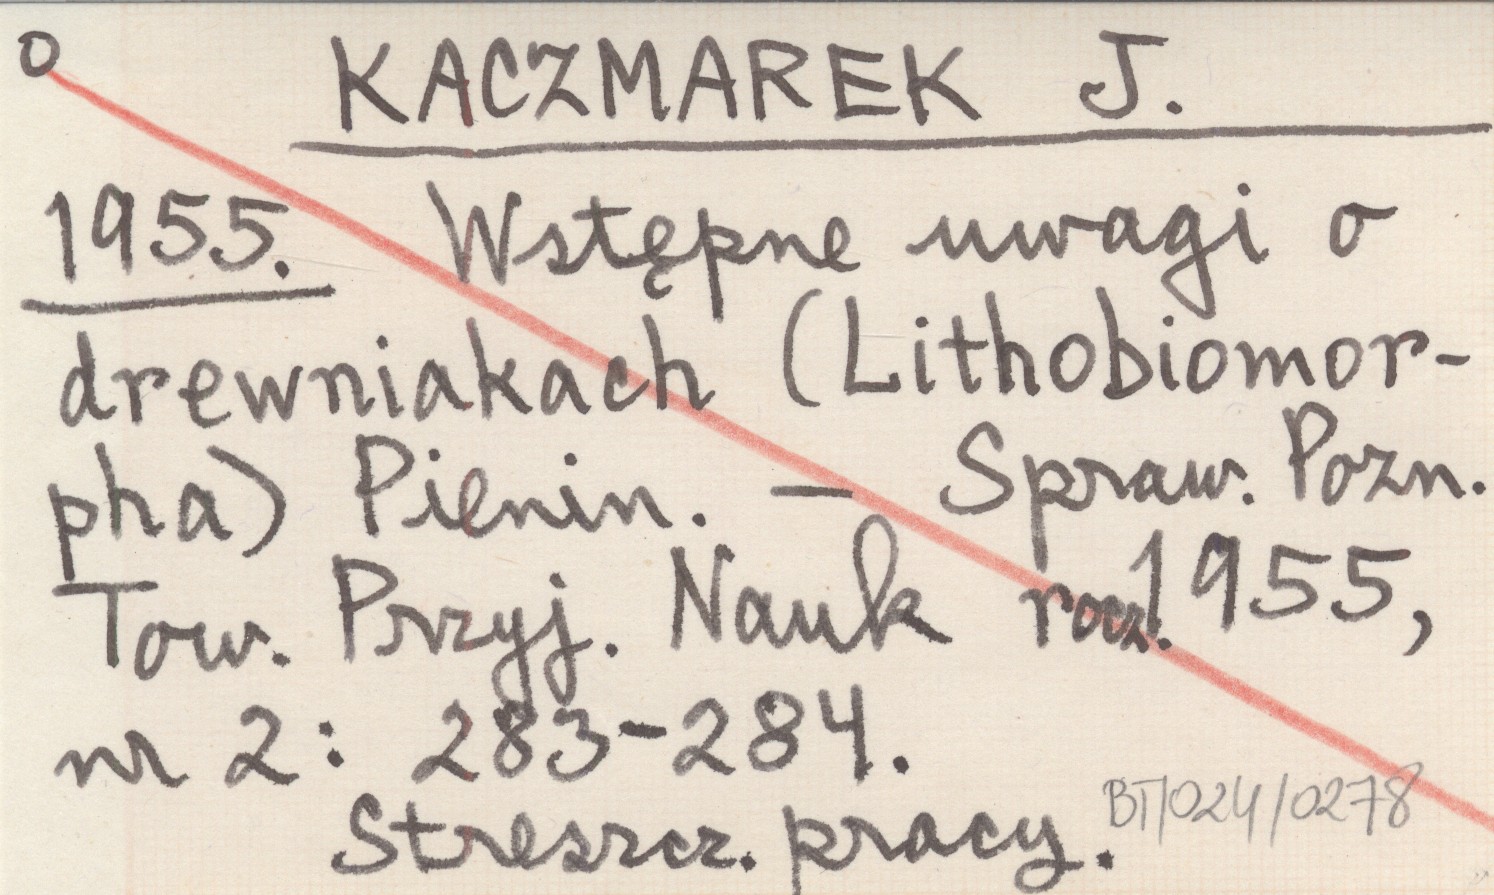 o
KACZMAREK J.
1955. Wstępne uwagi o
drewniakach (Lithobiomor-
pha) Pienin. — Spraw. Pozn.
Tow. Przyj. Nauk rocz. 1955,
nr 2: 283-284.
Streszcz. pracy.
BTI/024/0278